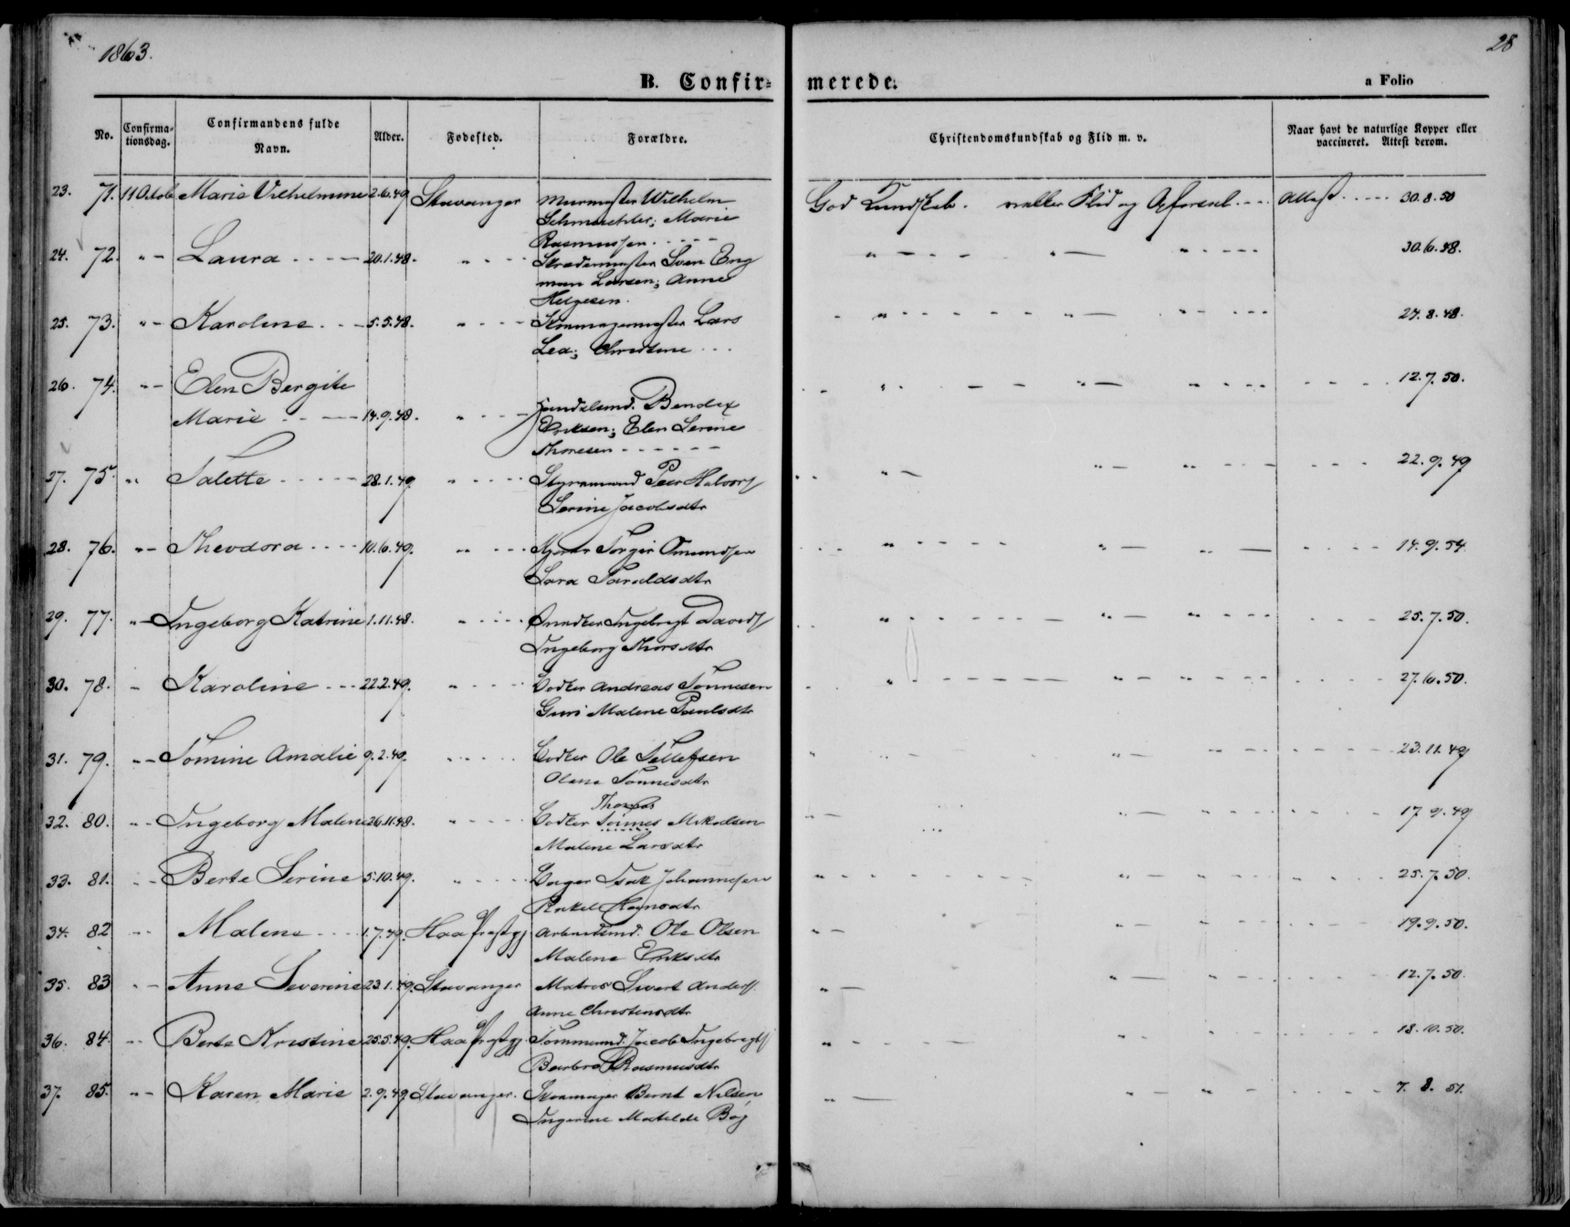 1863.
28
B. Confir=
merede.
a Folio
No.
Confirma-
tionsdag.
Confirmandens fulde
Navn.
Alder.
Fødested.
Forældre.
Christendomskundskab og Flid m. v.
Naar havt de naturlige Kopper eller
vaccineret. Attest derom.
23. 71. 11 Octob Marie Vilhelmine 2.6.49 Stavanger Murmester Wilhelm God Kundskab. Flid og Attest 30.8.50
Marie
Rasmussen
24. 72. "- Laura 20.1.48. " Sven Eng 30.6.48.
man Larsen; Anne
Helgesen.
25. 73. "- Karoline 5.5.48. " Lars 24.8.48.
Lea;
26. 74. "- Elen Bergite 12.7.50.
Marie 14.9.48. " Handelsmd. Bendix
Eriksen; Elen Serine
Thoresen
27. 75. " Talette 28.1.49. " Styrmand Peer Halvors 22.9.49
Serine Jacobsdtr
28. 76. "- Theodora 10.6.49. " Torger Omundsen 14.9.54.
Sara Taraldsdtr
29. 77. "- Ingeborg Katrine 1.11.48. " Ingebrigt Davids 25.7.50.
Ingeborg Thorsdtr
30. 78. - Karoline 22.2.49. " Bødker Andreas Tønnesen 27.6.50.
Guri Malene Paulsdtr
31. 79. "- Tomine Amalie 9.2.49. " Bødker Ole Tollefsen 23.11.49
Olene Tønnesdtr
Thomas
32. 80. "- Ingeborg Malene 26.11.48. " Bødker Tønnes Mikalsen 17.9.49
Malene Larsdtr
33. 81. "- Berte Serine 5.10.49. " Bager Isak Johannesen 25.7.50.
Rakel
34. 82 "- Malene 1.7.49. Haa Præstgj Arbeidsmd. Ole Olsen 19.9.50.
Malene Eriksdtr
35. 83 "- Anne Severine 23.1.49. Stavanger Matros Sivert Anders 12.7.50.
Anne Christensdtr
36. 84. "- Berte Kristine 25.5.49. Haa Præstgj Tømmermd. Jacob Ingebrigts 18.10.50.
Barbra Rasmusdtr
37. 85. "- Karen Marie 2.9.49 Stavanger. Skomager Bernt Nilsen 7.8.51.
Ingerine Matilde Bøg